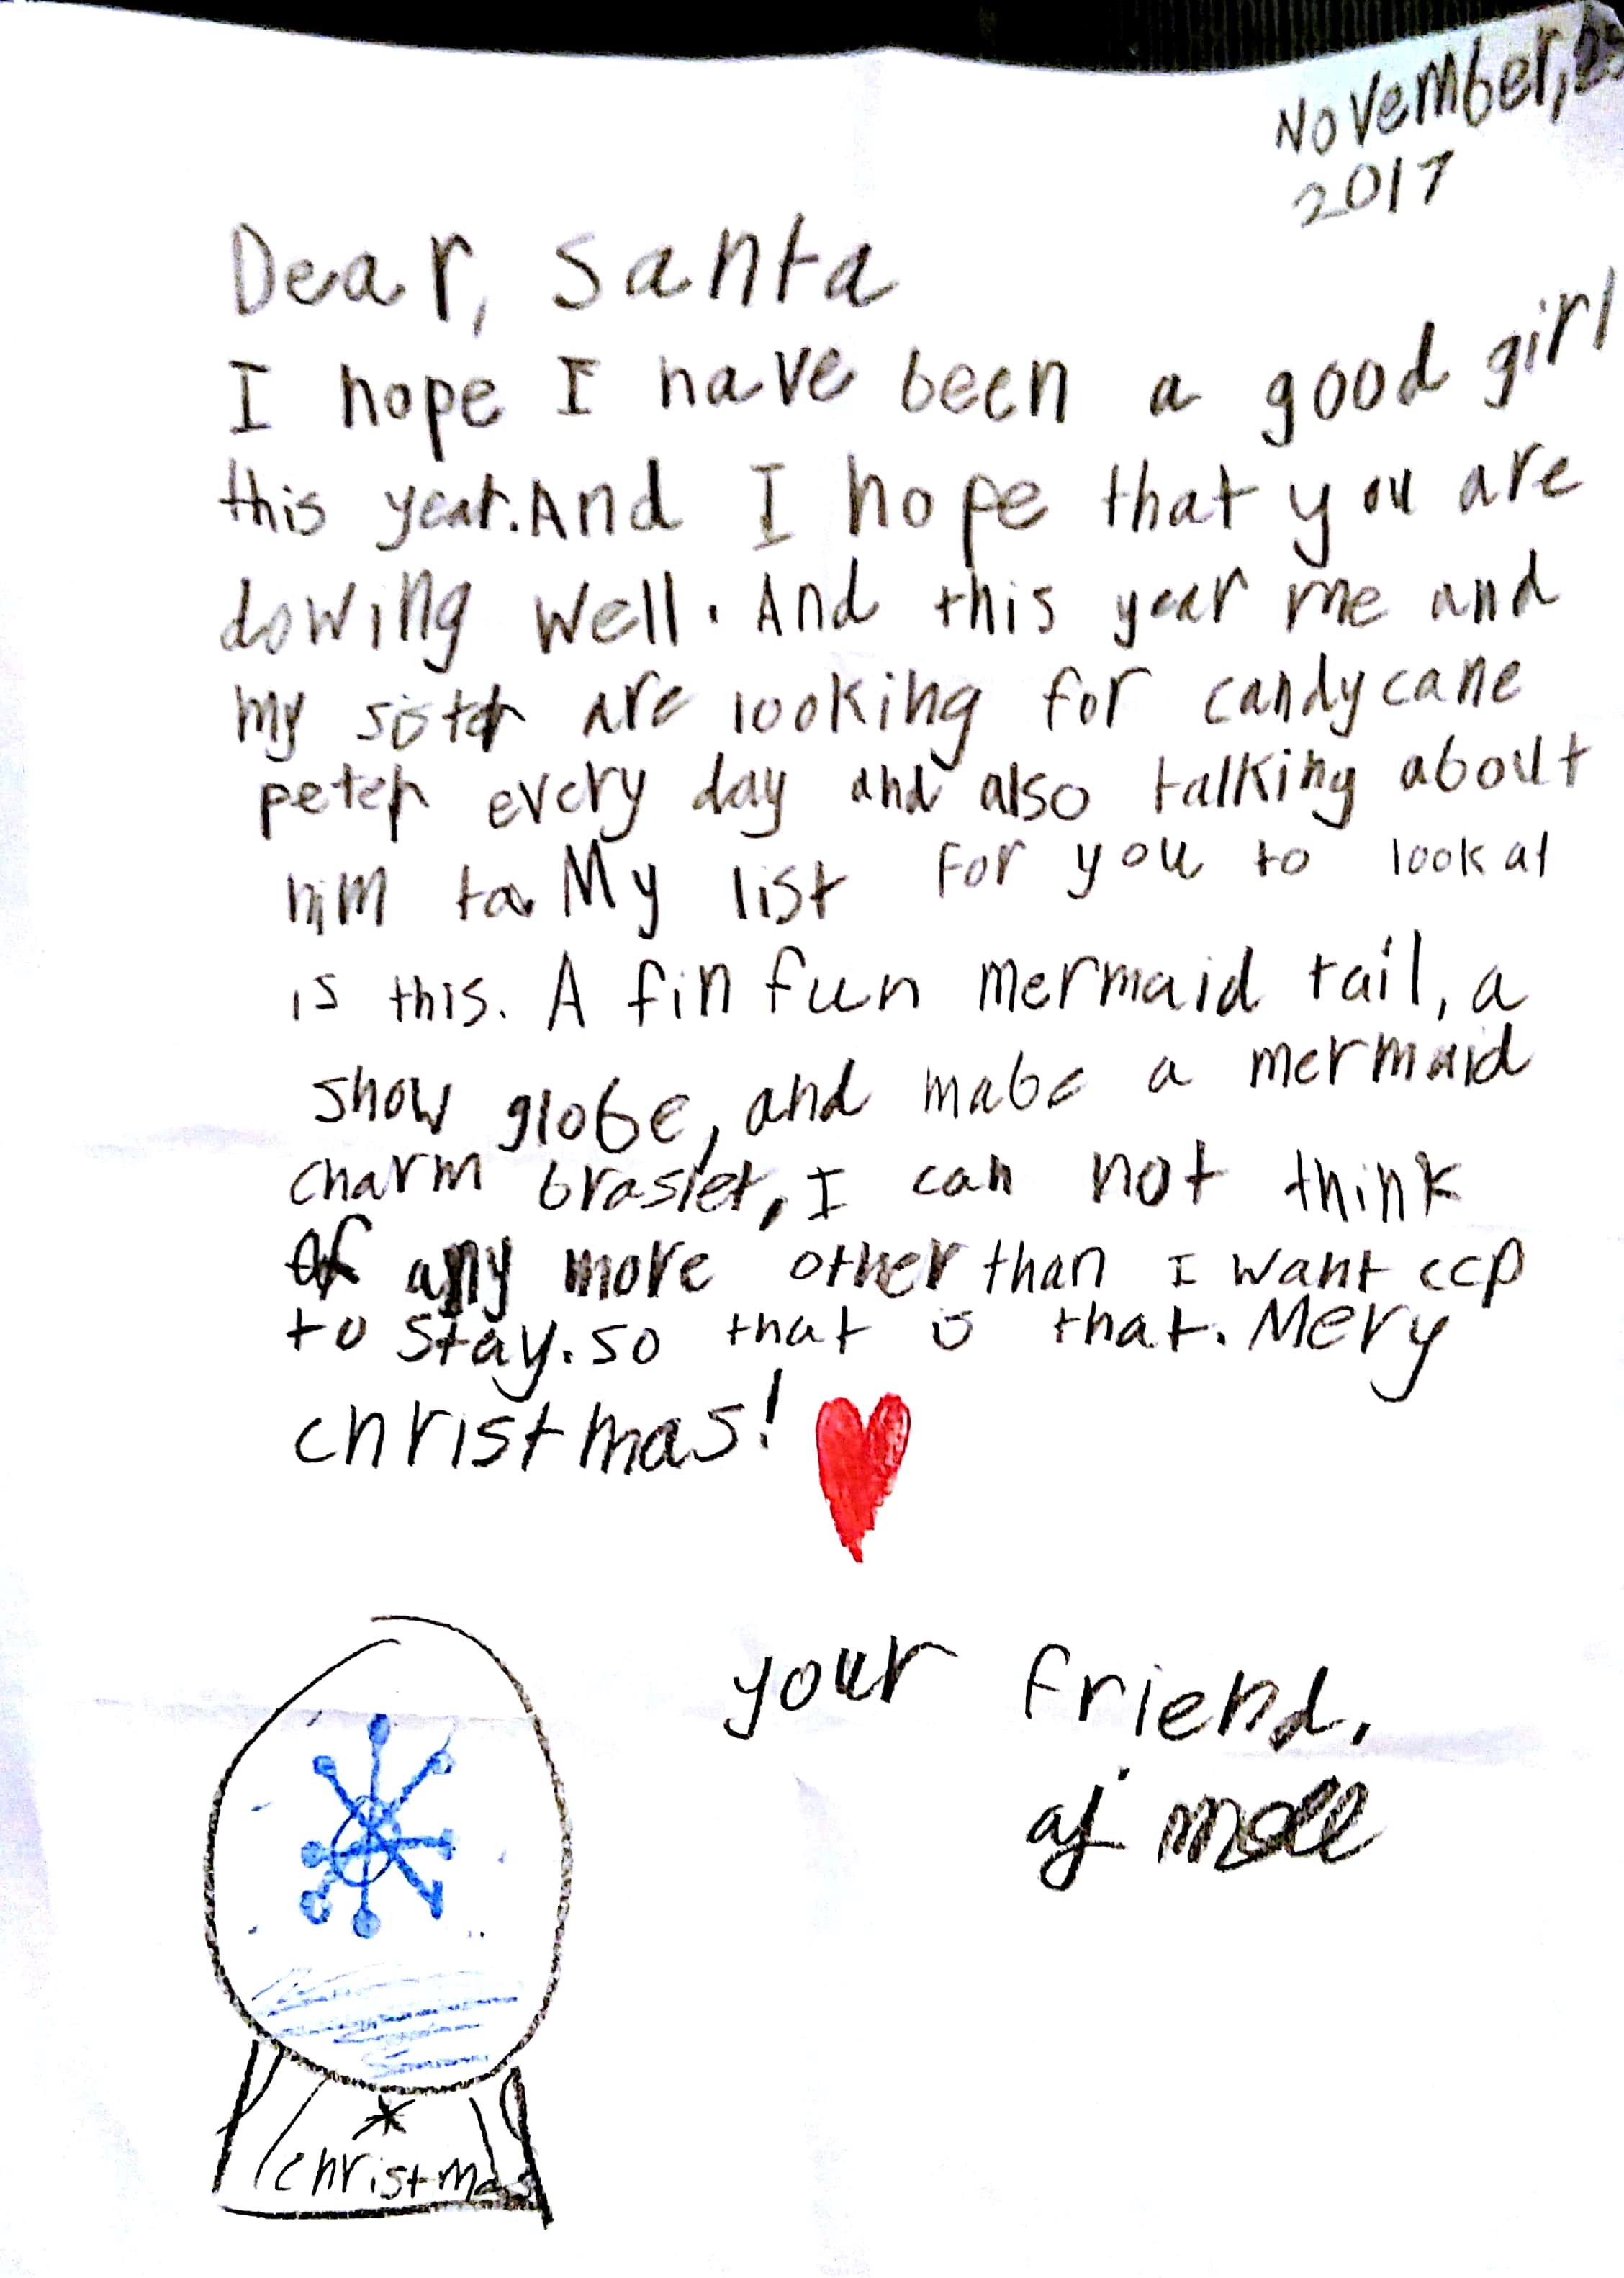 November,
2017
Dear, Santa
I hope I have been a good girl
this year. And I hope that you are
dowing well. And this year me and
my sister are looking for candy cane
peter every day and also talking about
him to. My list for you to look at
is this. A fin fun mermaid tail, a
snow globe, and mabe a mermaid
charm braslet, I can not think
of any more other than I want ccp
to stay. so that is that. Mery
christmas!
your friend,
aj
christmas